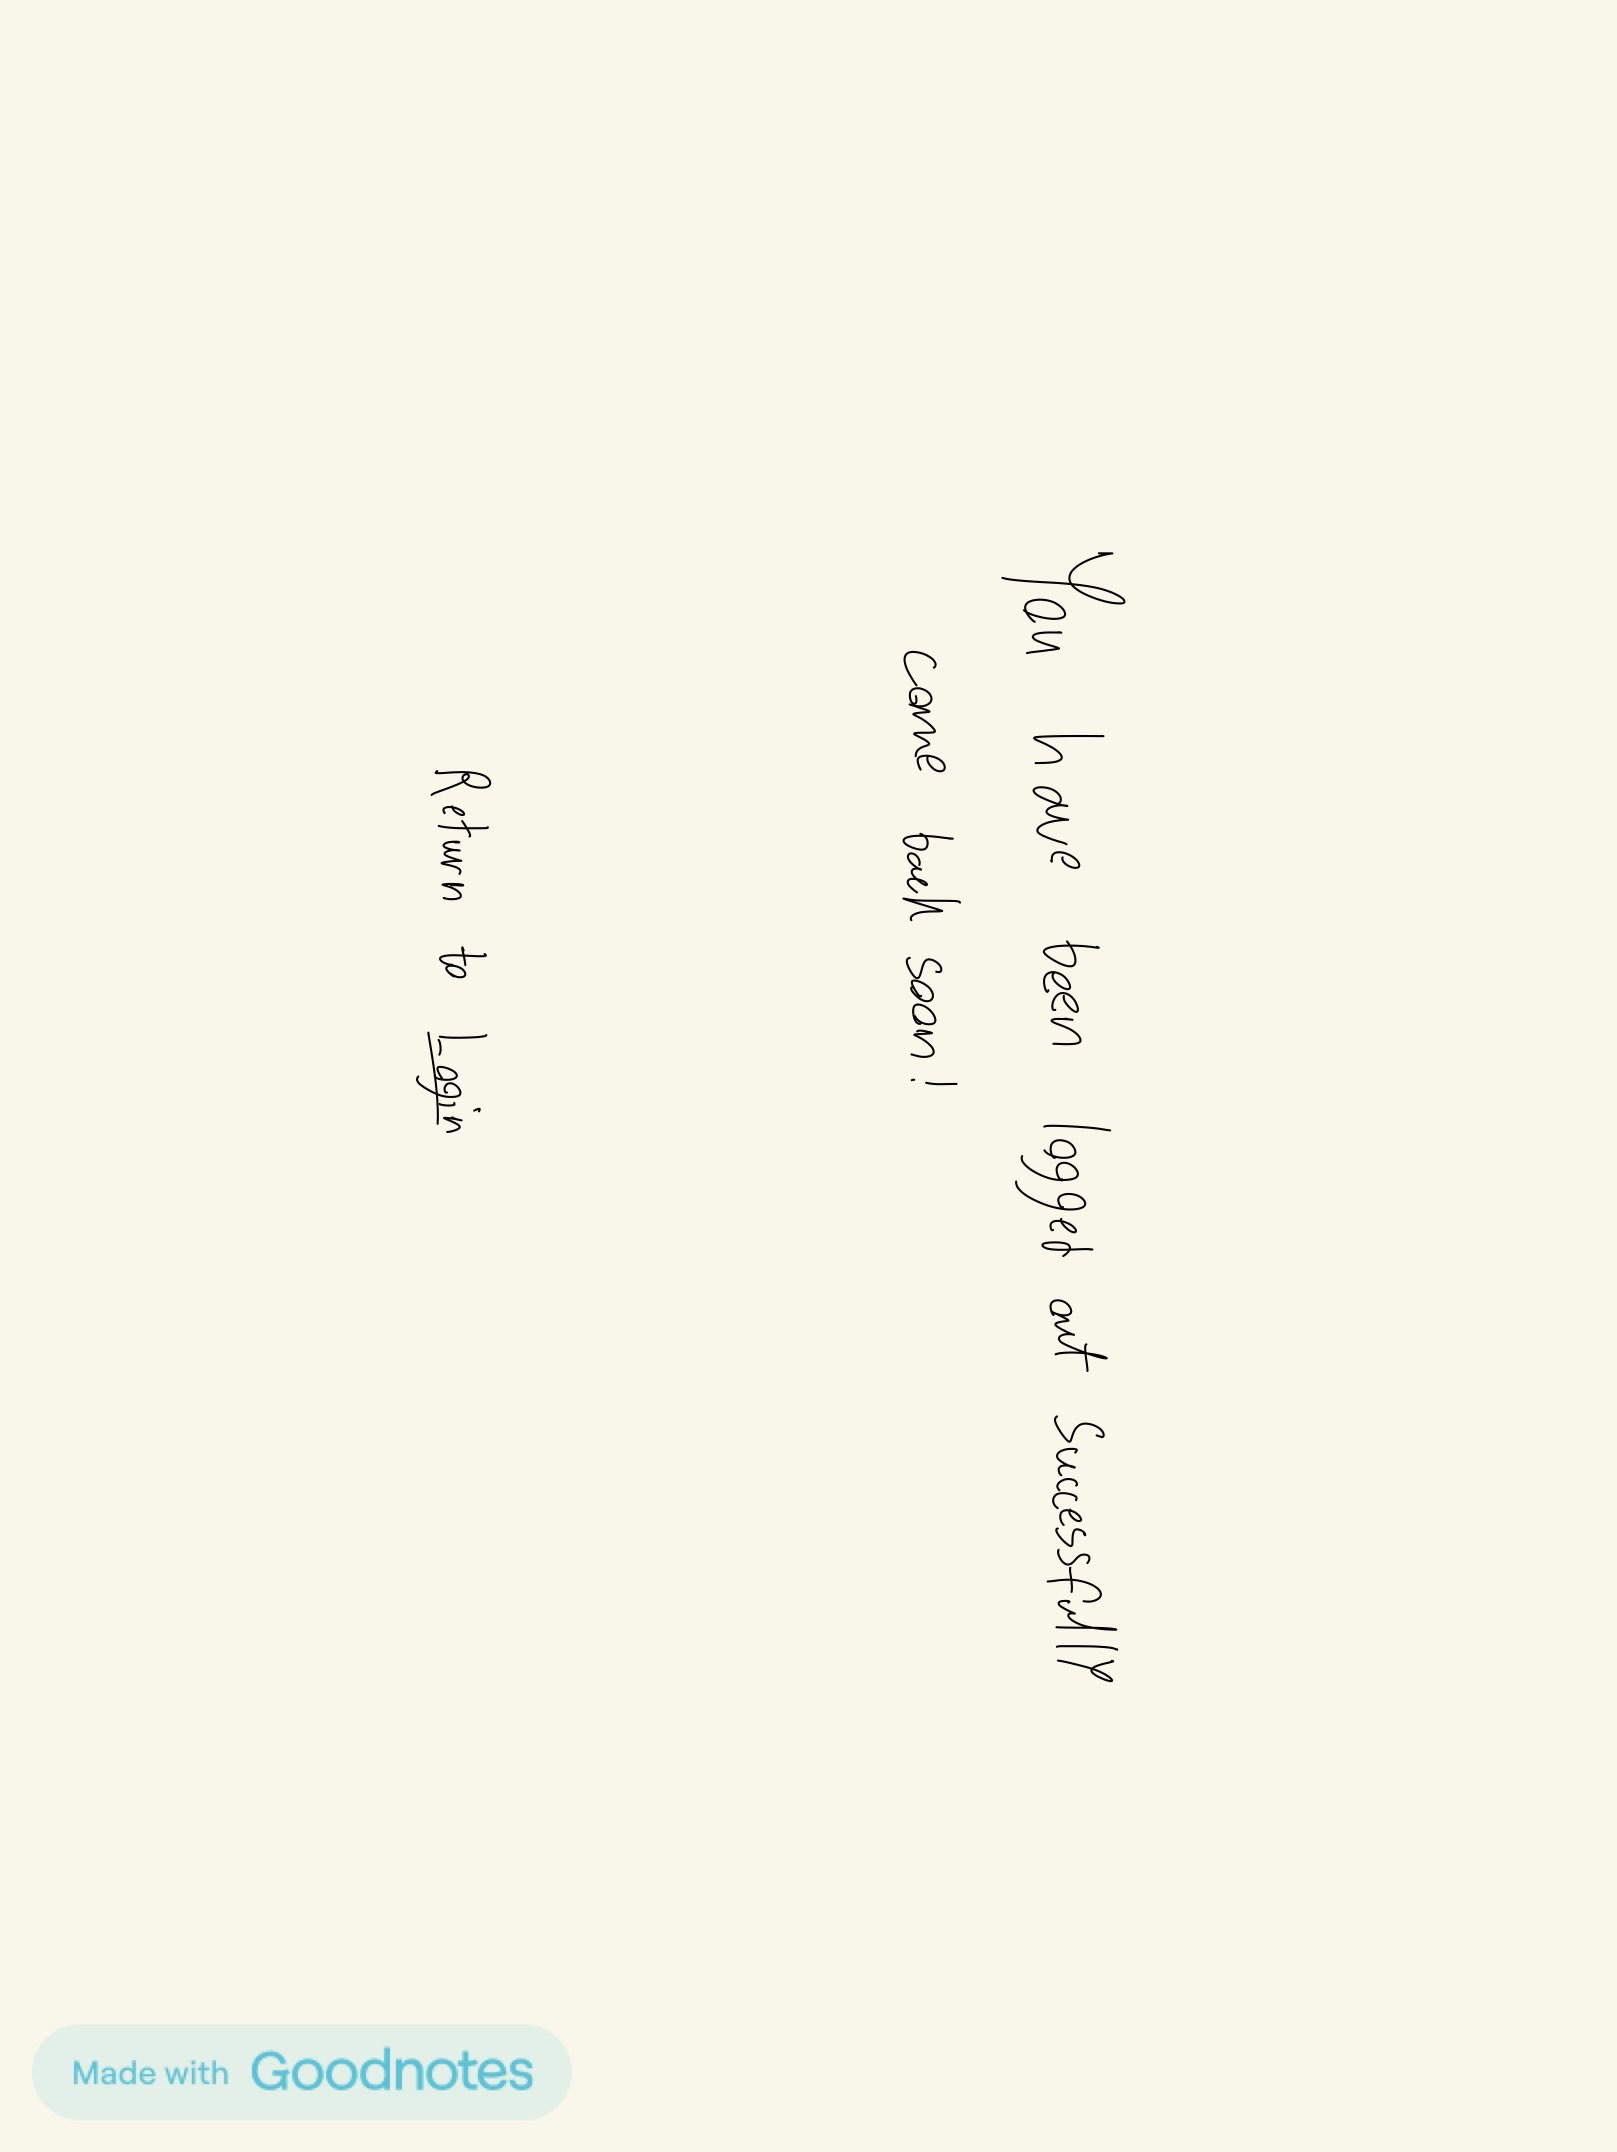 You have been logged out Successfully
come back soon!
Return to Login
Made with Goodnotes